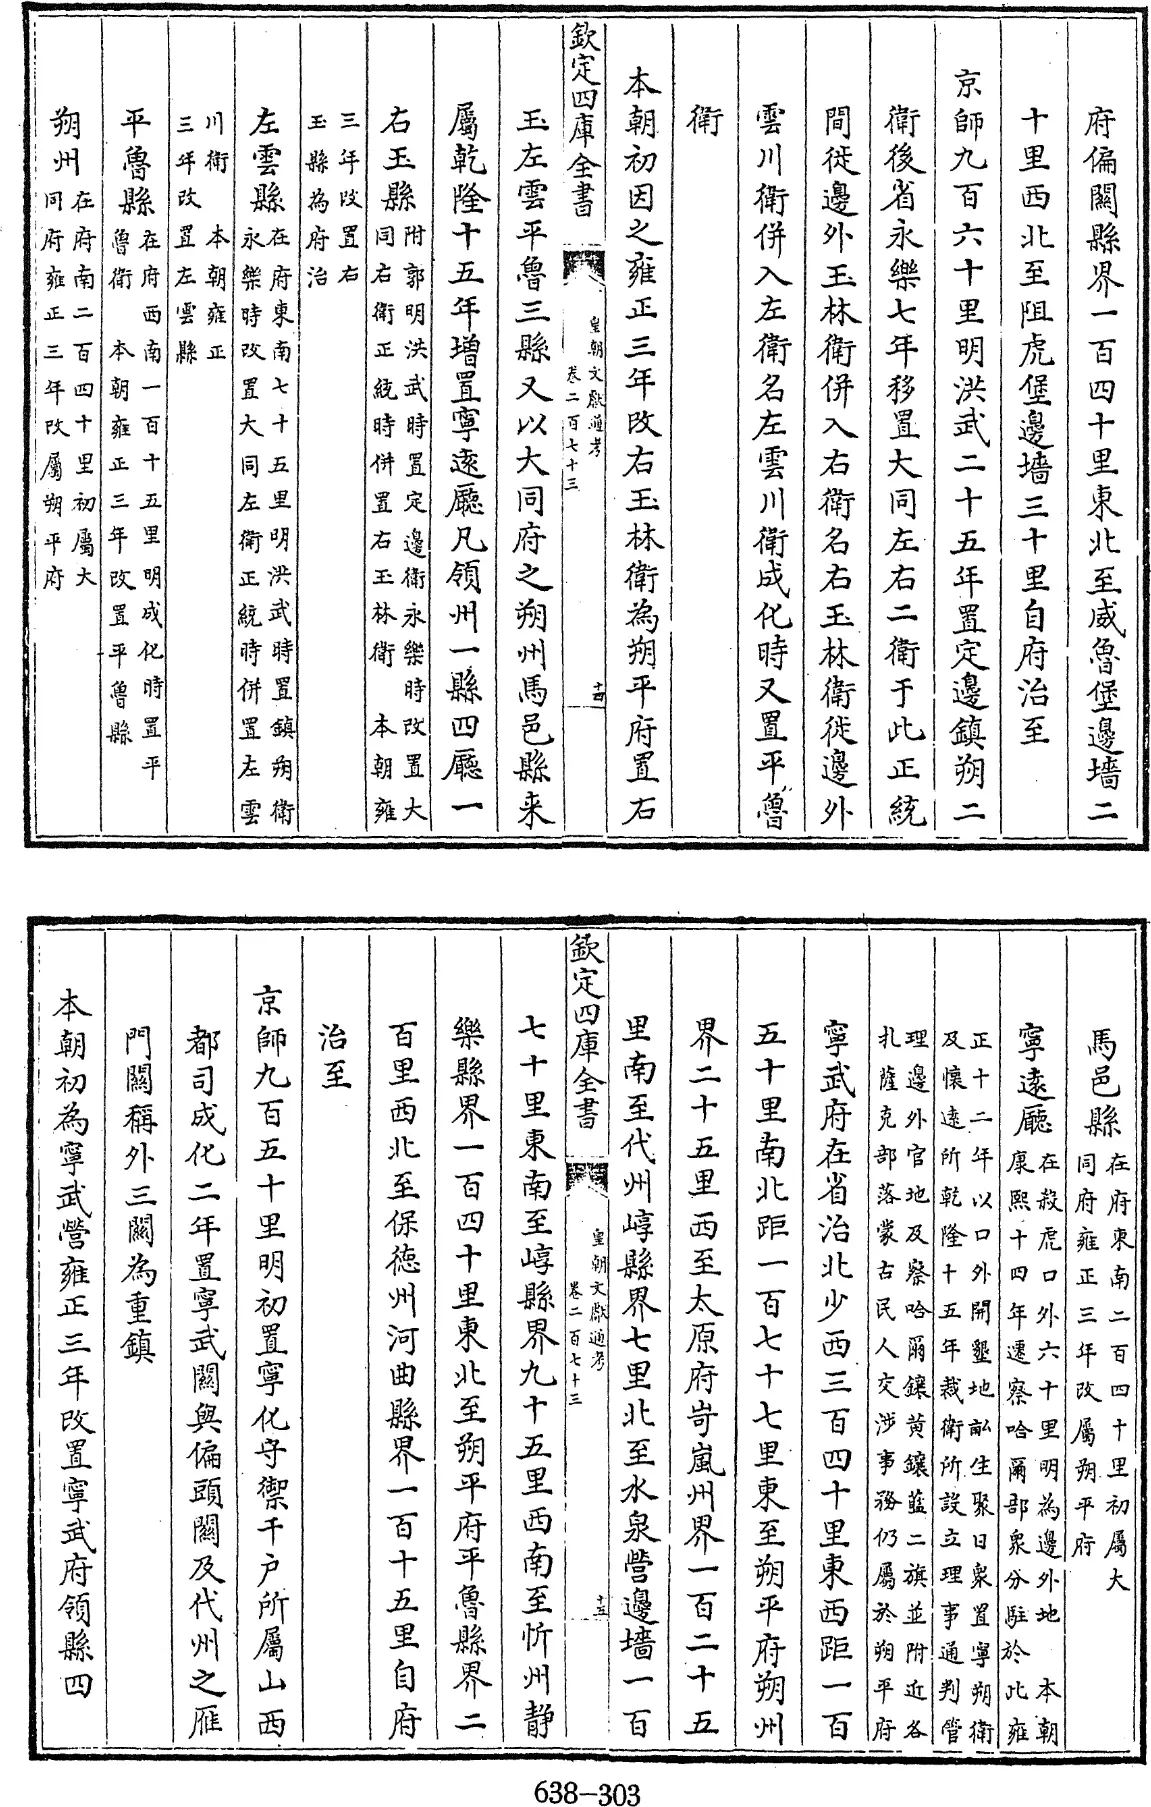 府偏關縣界一百四十里東北至威魯堡邊墻二
十里西北至阻虎堡邊墻三十里自府治至
京師九百六十里明洪武二十五年置定邊鎮朔二
衛後省永樂七年移置大同左右二衛于此正統
間徙邊外玉林衛併入右衛名右玉林衛徙邊外
雲川衛併入左衛名左雲川衛成化時又置平魯
衛
本朝初因之雍正三年改右玉林衛為朔平府置右
欽定四庫全書
皇朝文獻通考
卷二百七十三
十四
玉左雲平魯三縣又以大同府之朔州馬邑縣来
屬乾隆十五年增置寧遠廳凡領州一縣四廳一
右玉縣附郭明洪武時置定邊衛永樂時改置大
同右衛正統時併置右玉林衛 本朝雍
三年改置右
玉縣為府治
左雲縣在府東南七十五里明洪武時置鎮朔衛
永樂時改置大同左衛正統時併置左雲
川衛 本朝雍正
三年改置左雲縣
平魯縣在府西南一百十五里明成化時置平
魯衛 本朝雍正三年改置平魯縣
朔州在府南二百四十里初屬大
同府雍正三年改屬朔平府
馬邑縣在府東南二百四十里初屬大
同府雍正三年改屬朔平府
寧遠廳在殺虎口外六十里明為邊外地 本朝
康熙十四年遷察哈爾部衆分駐於此雍
正十二年以口外開墾地畝生聚日衆置寧朔衛
及懷遠所乾隆十五年裁衛所設立理事通判管
理邊外官地及察哈爾鑲黄鑲藍二旗並附近各
扎薩克部落蒙古民人交涉事務仍屬於朔平府
寧武府在省治北少西三百四十里東西距一百
五十里南北距一百七十七里東至朔平府朔州
界二十五里西至太原府岢嵐州界一百二十五
里南至代州崞縣界七里北至水泉營邊墻一百
欽定四庫全書
皇朝文獻通考
卷二百七十三
十五
七十里東南至崞縣界九十五里西南至忻州靜
樂縣界一百四十里東北至朔平府平魯縣界二
百里西北至保德州河曲縣界一百十五里自府
治至
京師九百五十里明初置寧化守禦千户所屬山西
都司成化二年置寧武關與偏頭關及代州之雁
門關稱外三關為重鎮
本朝初為寧武營雍正三年改置寧武府領縣四
638-303